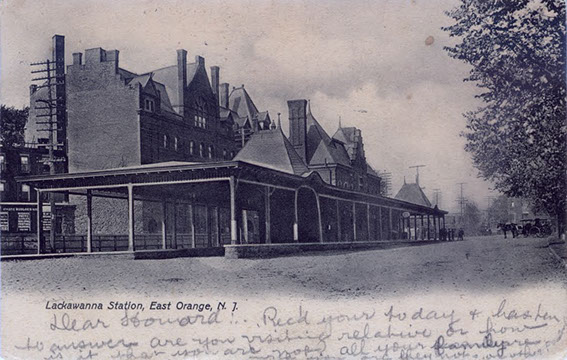 Lackawanna Station, East Orange, N. J.
Dear Howard!!.. Reck your today & hasten
to answer are you visiting relative or how
is it that you are not all your